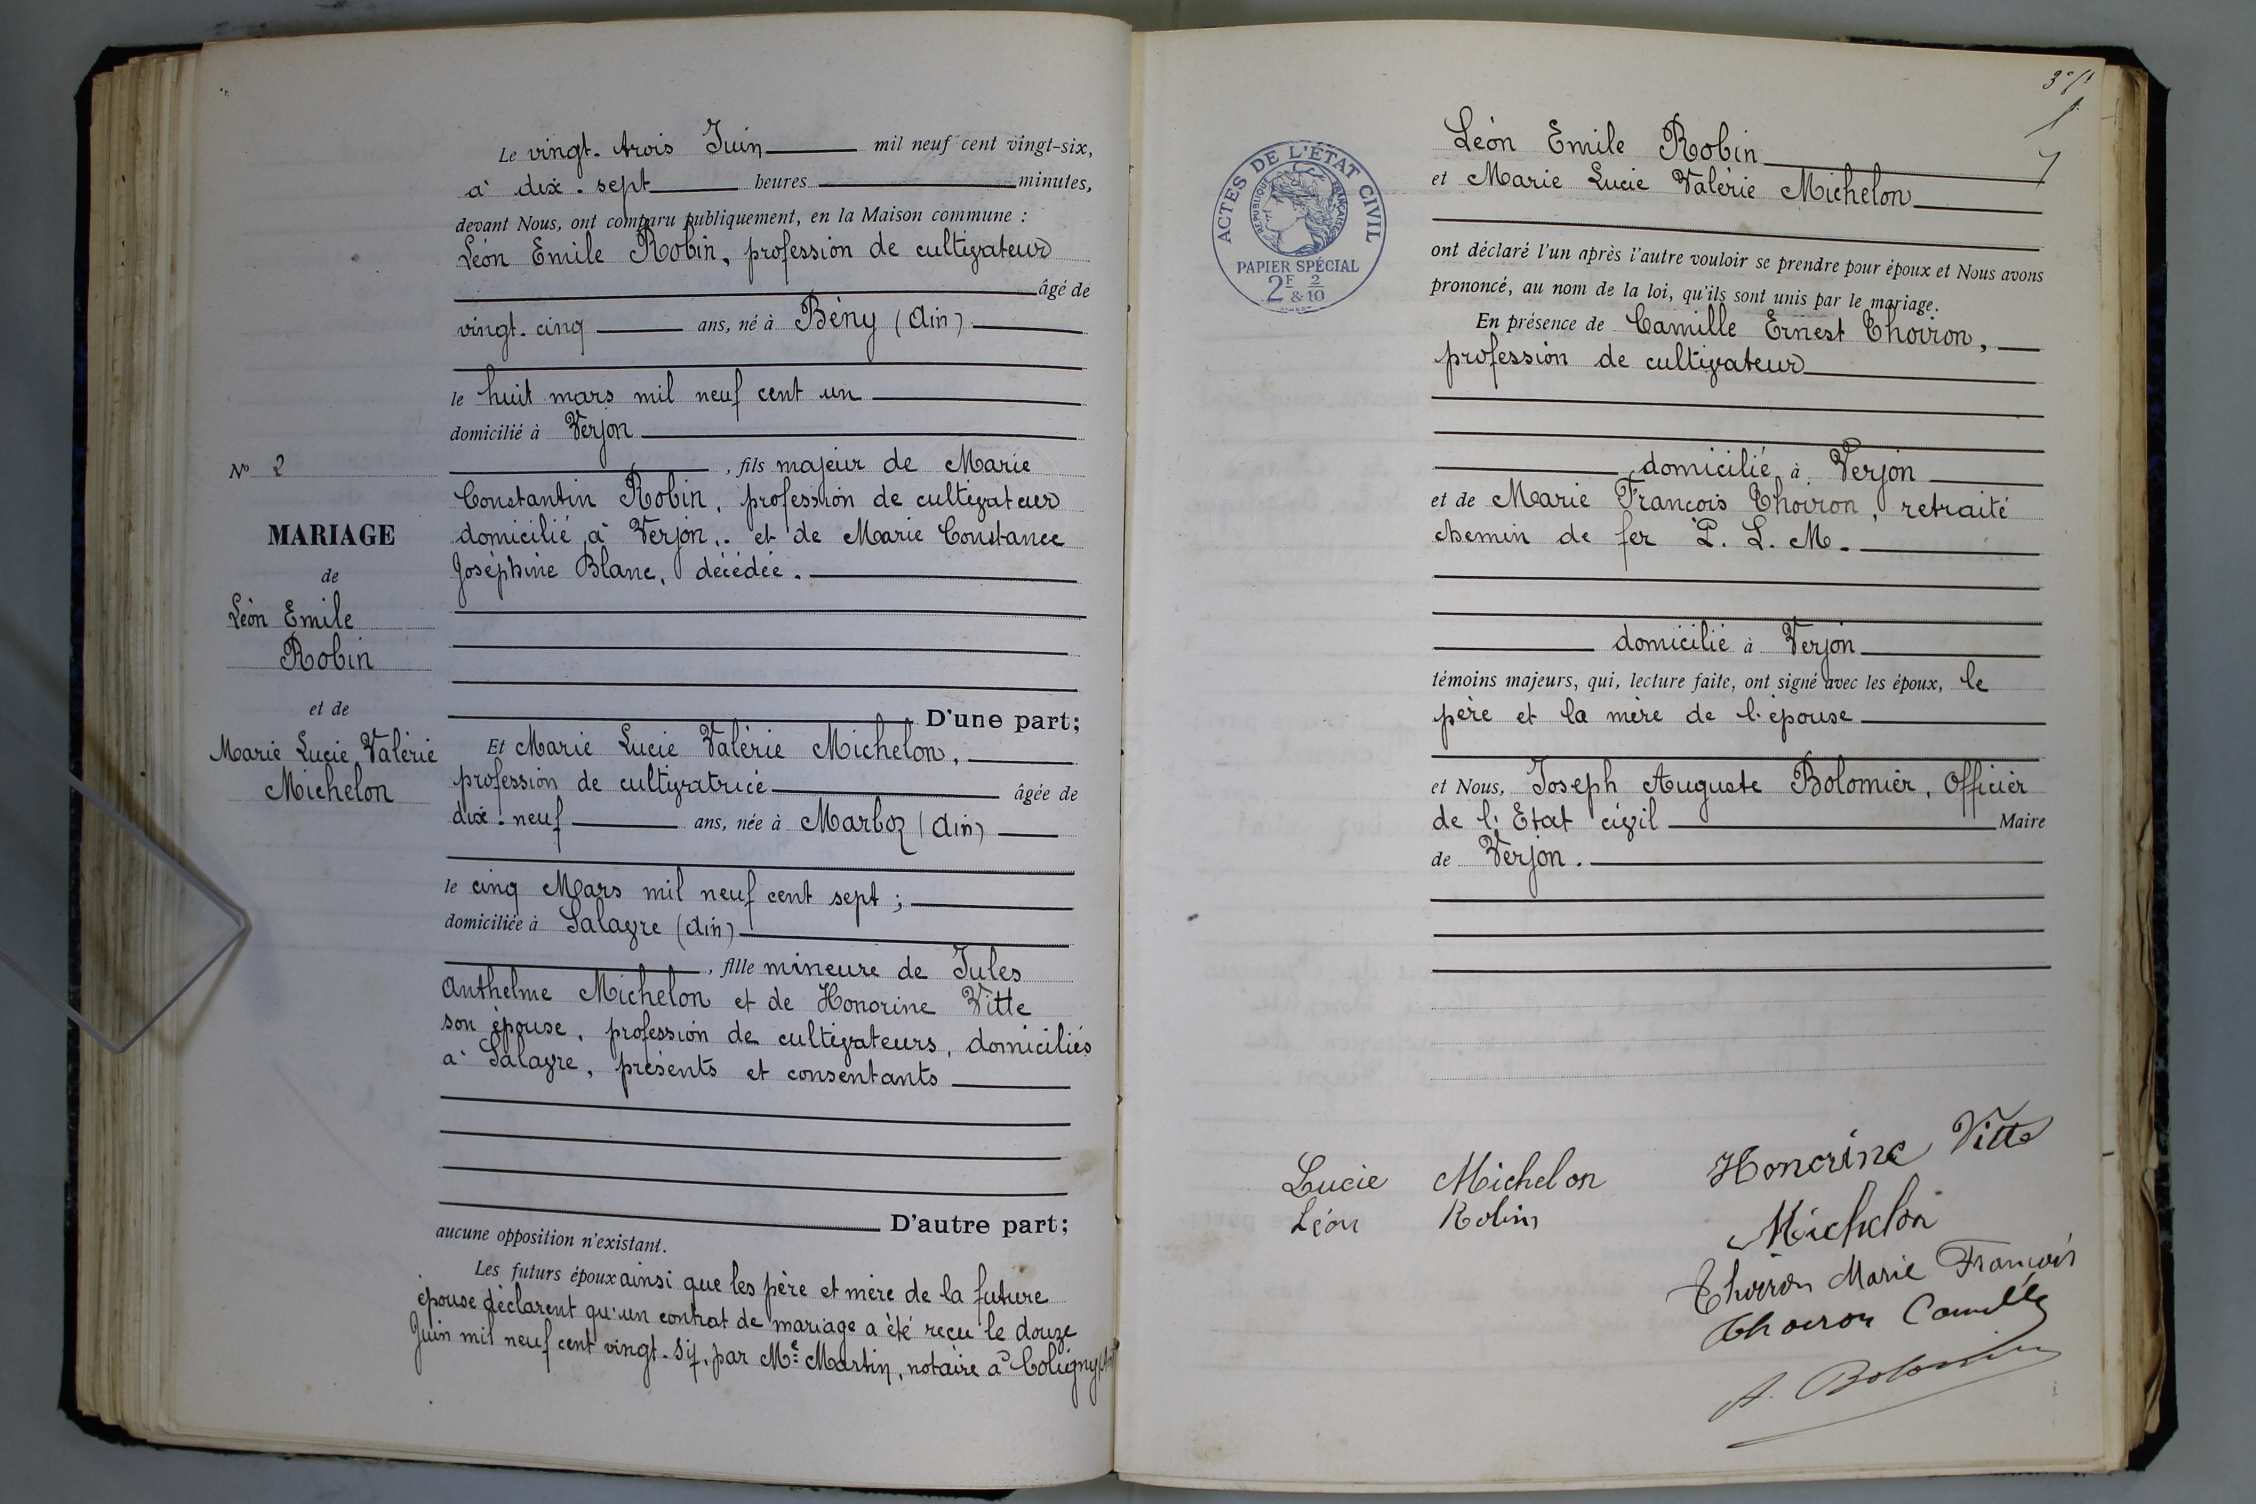 Le vingt-trois Juin mil neuf cent vingt-six,
à dix-sept heures minutes,
devant Nous, ont comparu publiquement, en la Maison commune :
Léon Emile Robin, profession de cultivateur
âgé de
vingt-cinq ans, né à Bény (Ain)
le huit mars mil neuf cent un
domicilié à Verjon
, fils majeur de Marie
Constantin Robin, profession de cultivateur
domicilié à Verjon, et de Marie Constance
Joséphine Blanc, décédée.
D'une part;
Et Marie Lucie Valérie Michelon,
profession de cultivatrice âgée de
dix-neuf ans, née à Marboz (Ain)
le cinq Mars mil neuf cent sept ;
domiciliée à Salavre (Ain)
, fille mineure de Jules
Anthelme Michelon et de Honorine Vitte
son épouse, profession de cultivateurs, domiciliés
à Salavre, présents et consentants
D'autre part;
aucune opposition n'existant.
Les futurs époux ainsi que les père et mère de la future
épouse déclarent qu'un contrat de mariage a été reçu le douze
Juin mil neuf cent vingt-six, par Me Martin, notaire à Coligny (Ain)
No 2
MARIAGE
de
Léon Emile
Robin
et de
Marie Lucie Valérie
Michelon
ACTES DE L'ÉTAT CIVIL
RÉPUBLIQUE FRANÇAISE
PAPIER SPÉCIAL
2F & 2/10
Léon Emile Robin
et Marie Lucie Valérie Michelon
ont déclaré l'un après l'autre vouloir se prendre pour époux et Nous avons
prononcé, au nom de la loi, qu'ils sont unis par le mariage.
En présence de Camille Ernest Thoiron,
profession de cultivateur
domicilié à Verjon
et de Marie François Thoiron, retraité
chemin de fer P. L. M.
domicilié à Verjon
témoins majeurs, qui, lecture faite, ont signé avec les époux, le
père et la mère de l'épouse
et Nous, Joseph Auguste Bolomier, Officier
de l'Etat civil Maire
de Verjon.
Lucie Michelon
Léon Robin
Honorine Vitte
Michelon
Thoiron Marie François
Thoiron Camille
A. Bolomier